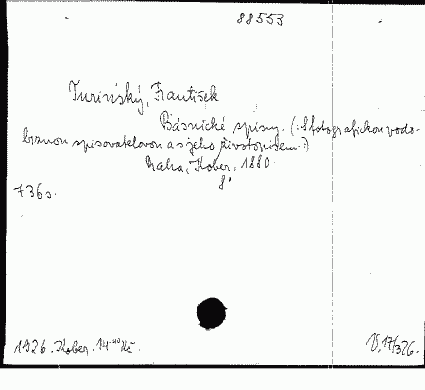 88553
Turinský, František
Básnické spisy. (: S fotografickou podo-
biznou spisovatelovou a s jeho životopisem :)
Praha, Kober, 1880.
8°
736 s.
1926. Kober. 14.40 Kč. 17/326.